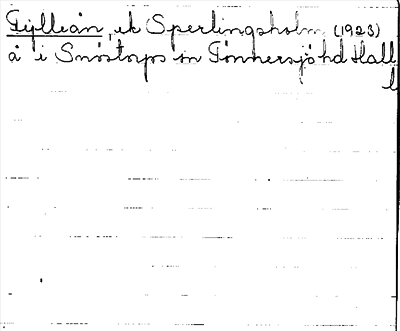 Fylleån, ek Sperlingsholm (1923)
å i Snöstorps sn Tönnersjö hd Hall
l